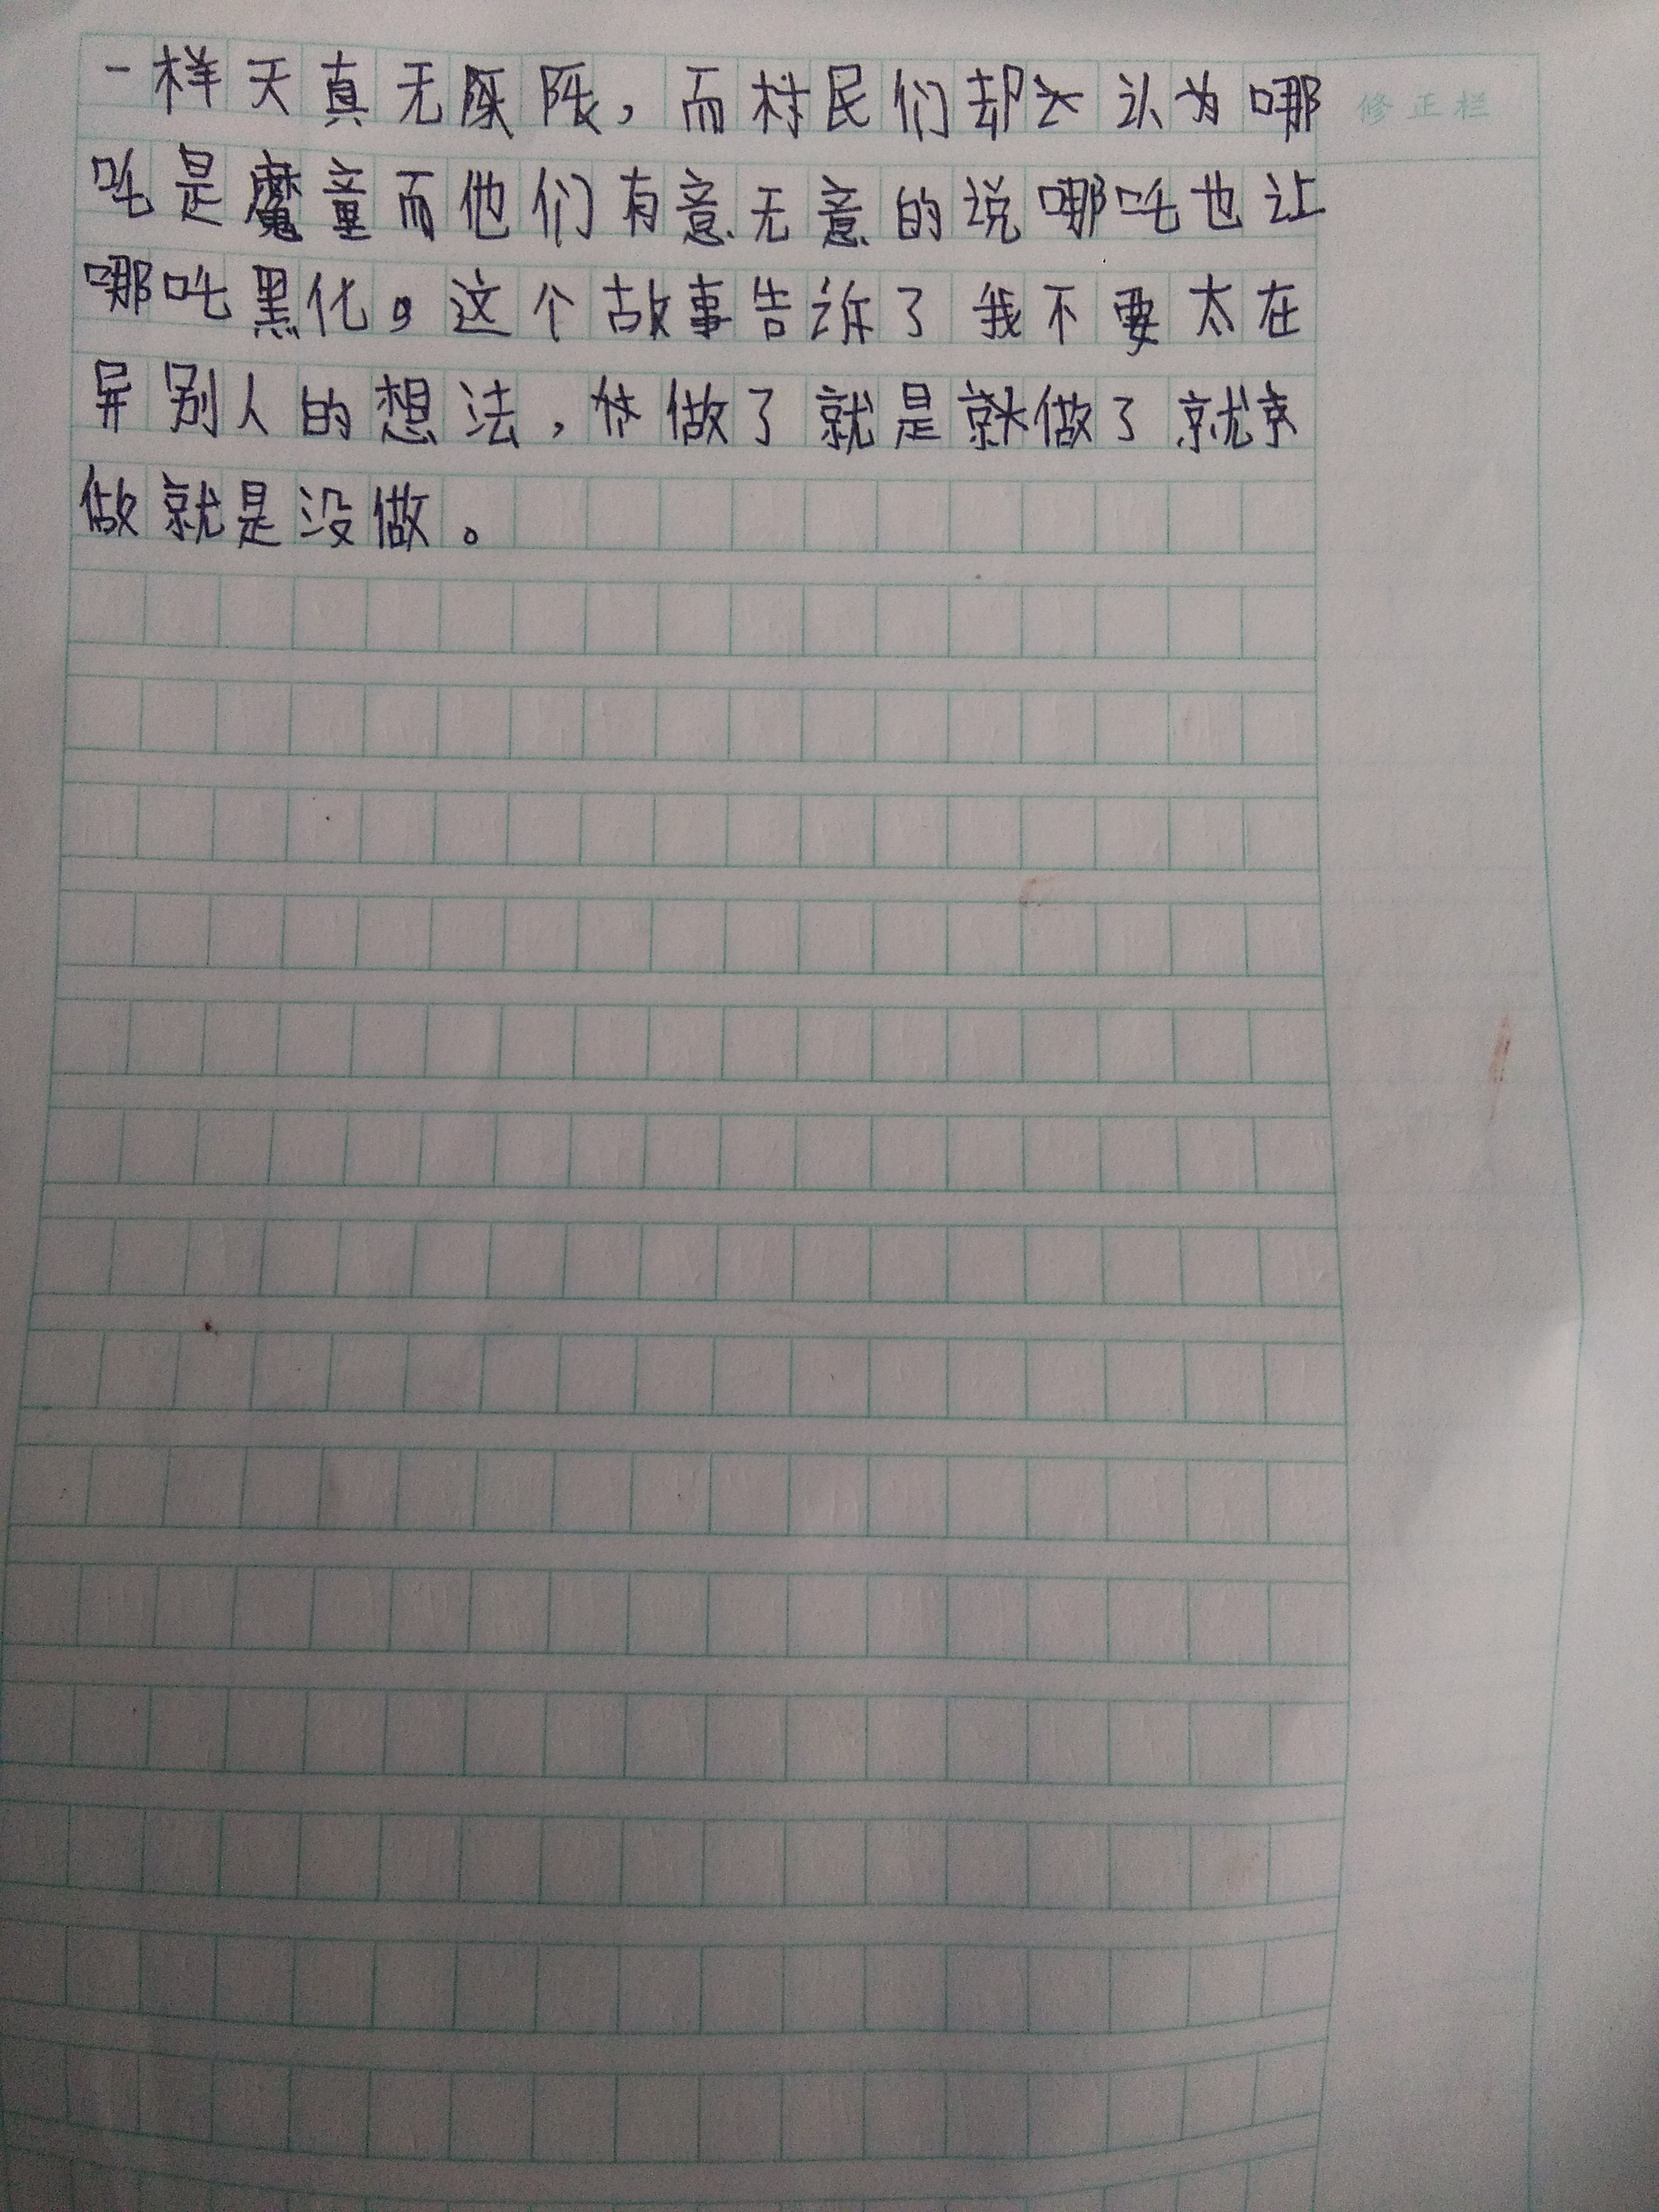 一样天真无限，而村民们却认为哪
修正栏
吒是魔童而他们有意无意的说哪吒也让
哪吒黑化。这个故事告诉了我不要太在
异别人的想法，做了就是做了就
做就是没做。